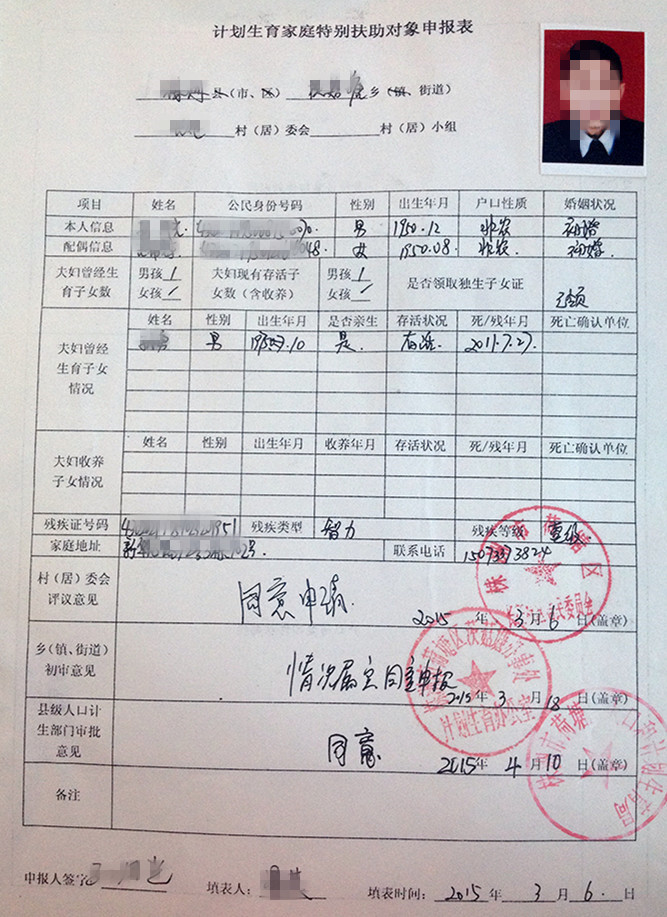 计划生育家庭特别扶助对象申报表
县(市、区) 乡(镇、街道)
村(居)委会 村(居)小组
项目 姓名 公民身份号码 性别 出生年月 户口性质 婚姻状况
本人信息 男 1950.12 非农 初婚
配偶信息 48 女 1950.08. 非农 初婚
夫妇曾经生育子女数 男孩 1 女孩 / 夫妇现有存活子女数(含收养) 男孩 1 女孩 / 是否领取独生子女证 已领
夫妇曾经生育子女情况
姓名 性别 出生年月 是否亲生 存活状况 死/残年月 死亡确认单位
男 是. 存活. 2011.7.27.
夫妇收养子女情况
姓名 性别 出生年月 收养年月 存活状况 死/残年月 死亡确认单位
残疾证号码 1951 残疾类型 智力 残疾等级
家庭地址 联系电话
村(居)委会评议意见 同意申请. 2015年3月6日(盖章)
乡(镇、街道)初审意见 情况属实同意申报 2015年3月18日(盖章)
县级人口计生部门审批意见 同意 2015年4月10日(盖章)
计划生育办公室
备注
申报人签字 填表人: 填表时间: 2015年3月6.日